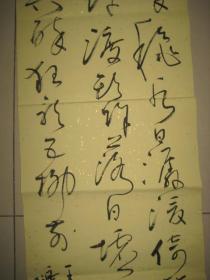 秋水日潺湲倚
渡頭餘落日墟
醉狂歌五柳前
王